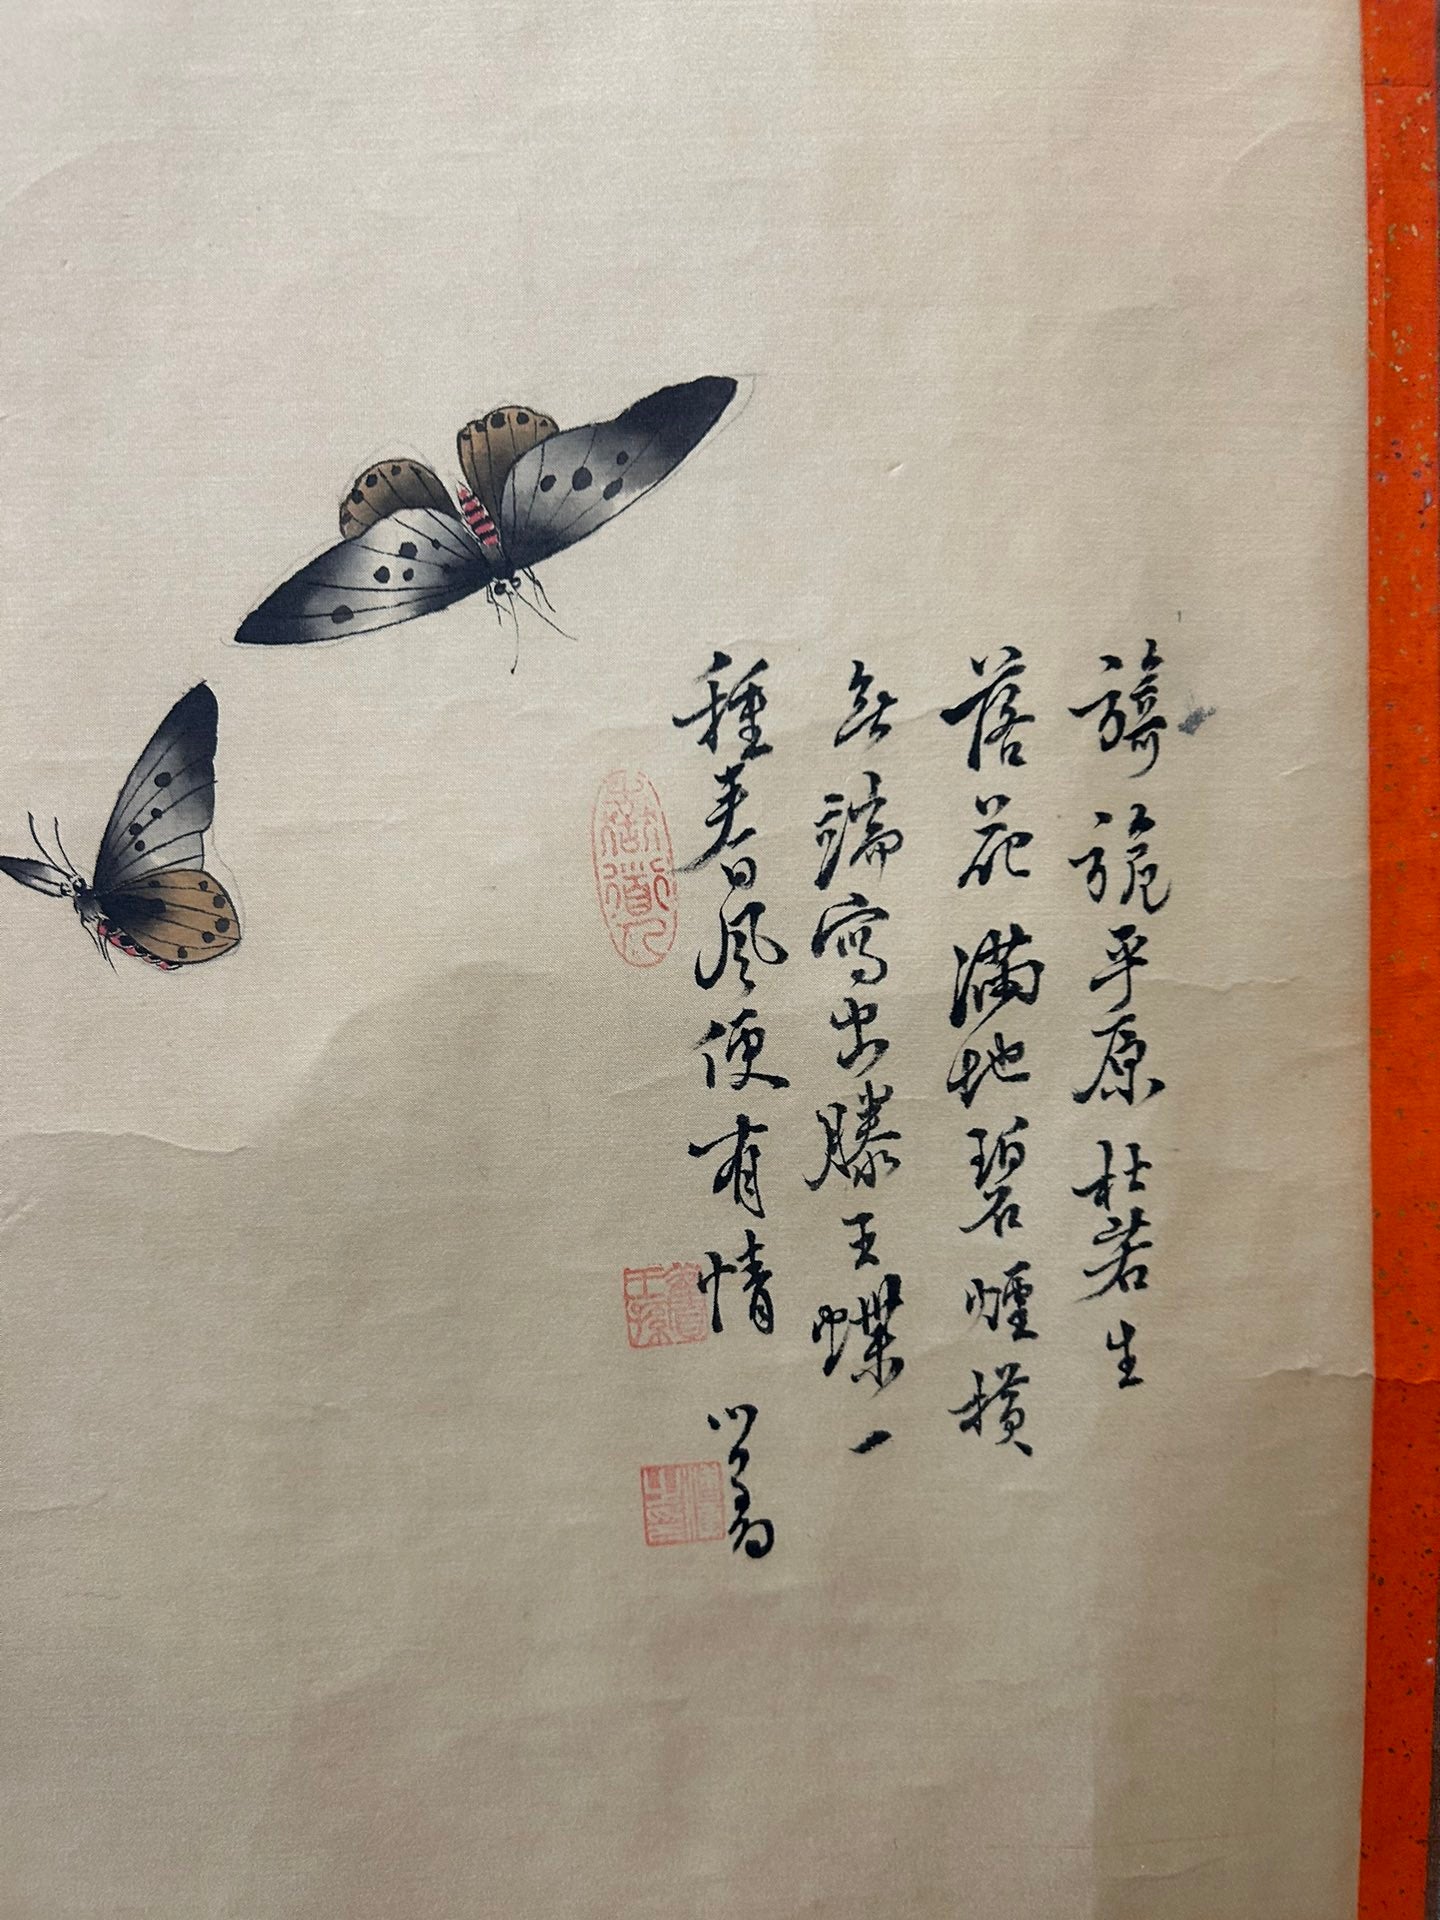 旖旎平原杜若生
落花滿地碧煙橫
無端寫出滕王蝶一
種春風便有情
心畬
舊王孫